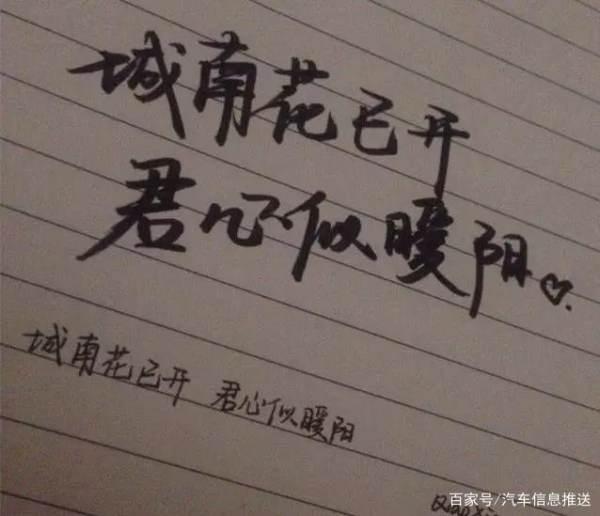 城南花已开
君心似暖阳♡.
城南花已开 君心似暖阳
百家号/汽车信息推送